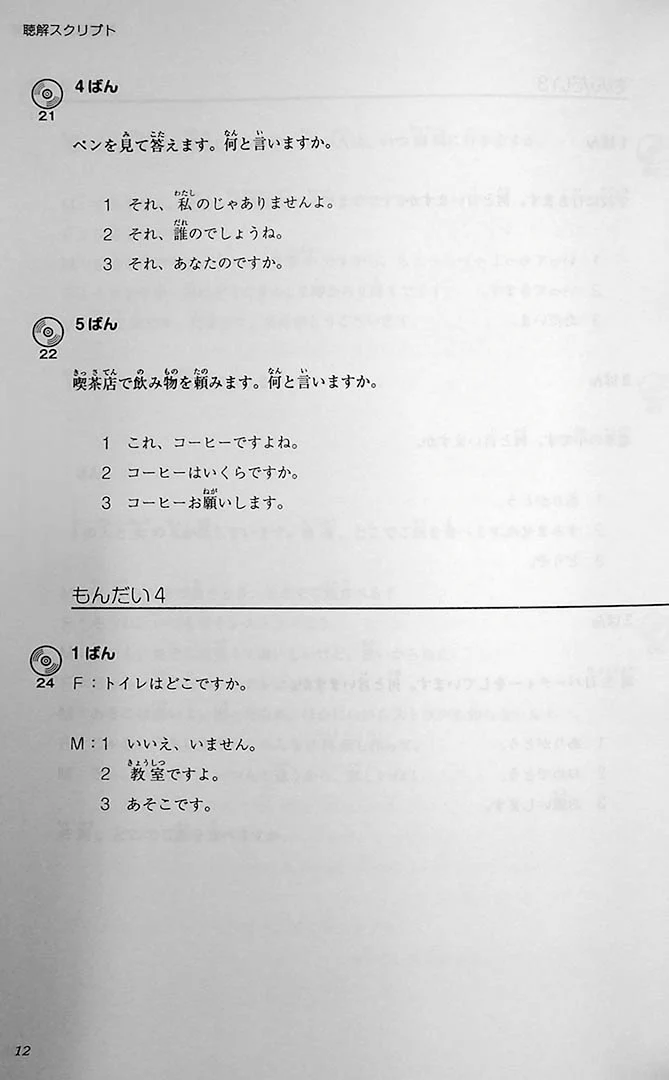 聴解スクリプト
4ばん
21
ペンを見て答えます。何と言いますか。
1 それ、私のじゃありませんよ。
2 それ、誰のでしょうね。
3 それ、あなたのですか。
5ばん
22
喫茶店で飲み物を頼みます。何と言いますか。
1 これ、コーヒーですよね。
2 コーヒーはいくらですか。
3 コーヒーお願いします。
もんだい4
1ばん
24
F：トイレはどこですか。
M：1 いいえ、いません。
2 教室ですよ。
3 あそこです。
12